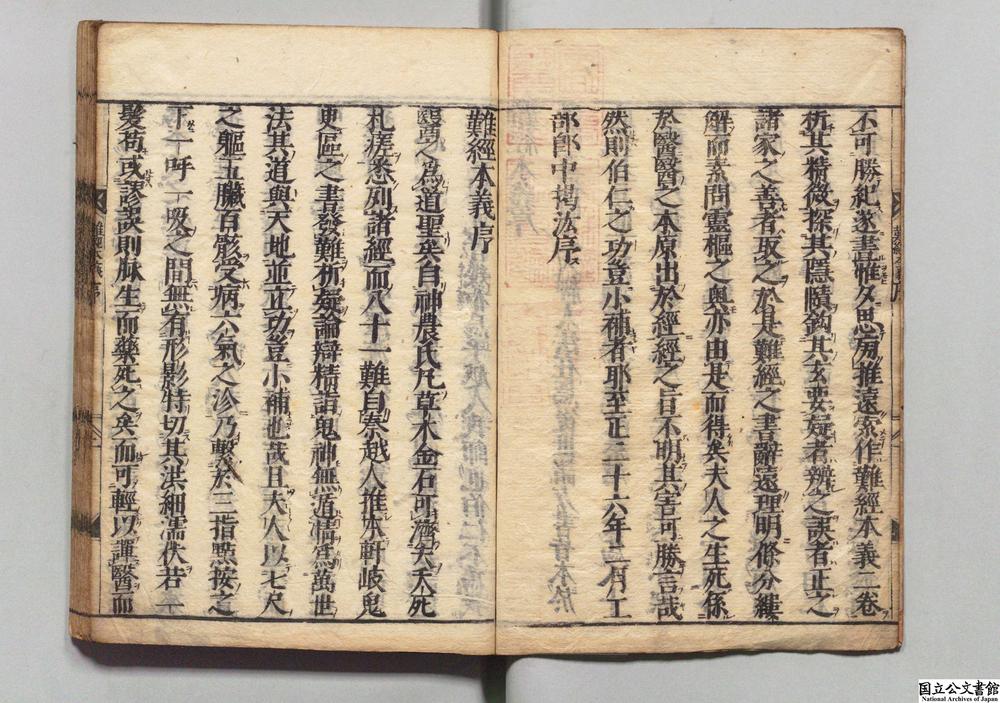 不可勝紀遂晝惟夕思旁推遠索作難經本義二卷
析其精微探其隱賾鈎其玄要疑者辨之誤者正之
諸家之善者取之於是難經之書辭遠理明條分縷
解而素問靈樞之奧亦由是而得矣夫人之生死係
於醫醫之本原出於經經之旨不明其害可勝言哉
然則伯仁之功豈小補者耶至正二十六年二月工
部郎中掲汯序
難經本義序
醫之為道聖矣自神農氏凡草木金石可濟夫夭死
札瘥悉列諸經而八十一難自秦越人推本軒岐鬼
臾區之書發難析疑論辯精詣鬼神無遁情為萬世
法其道與天地並立功豈小補也哉且夫人以七尺
之軀五臟百骸受病六氣之沴乃繫於三指點按之
下一呼一吸之間無有形影特切其洪細濡伏若一
髮苟或謬誤則脉生而藥死之矣而可輕以談醫而
國立公文書館
National Archives of Japan